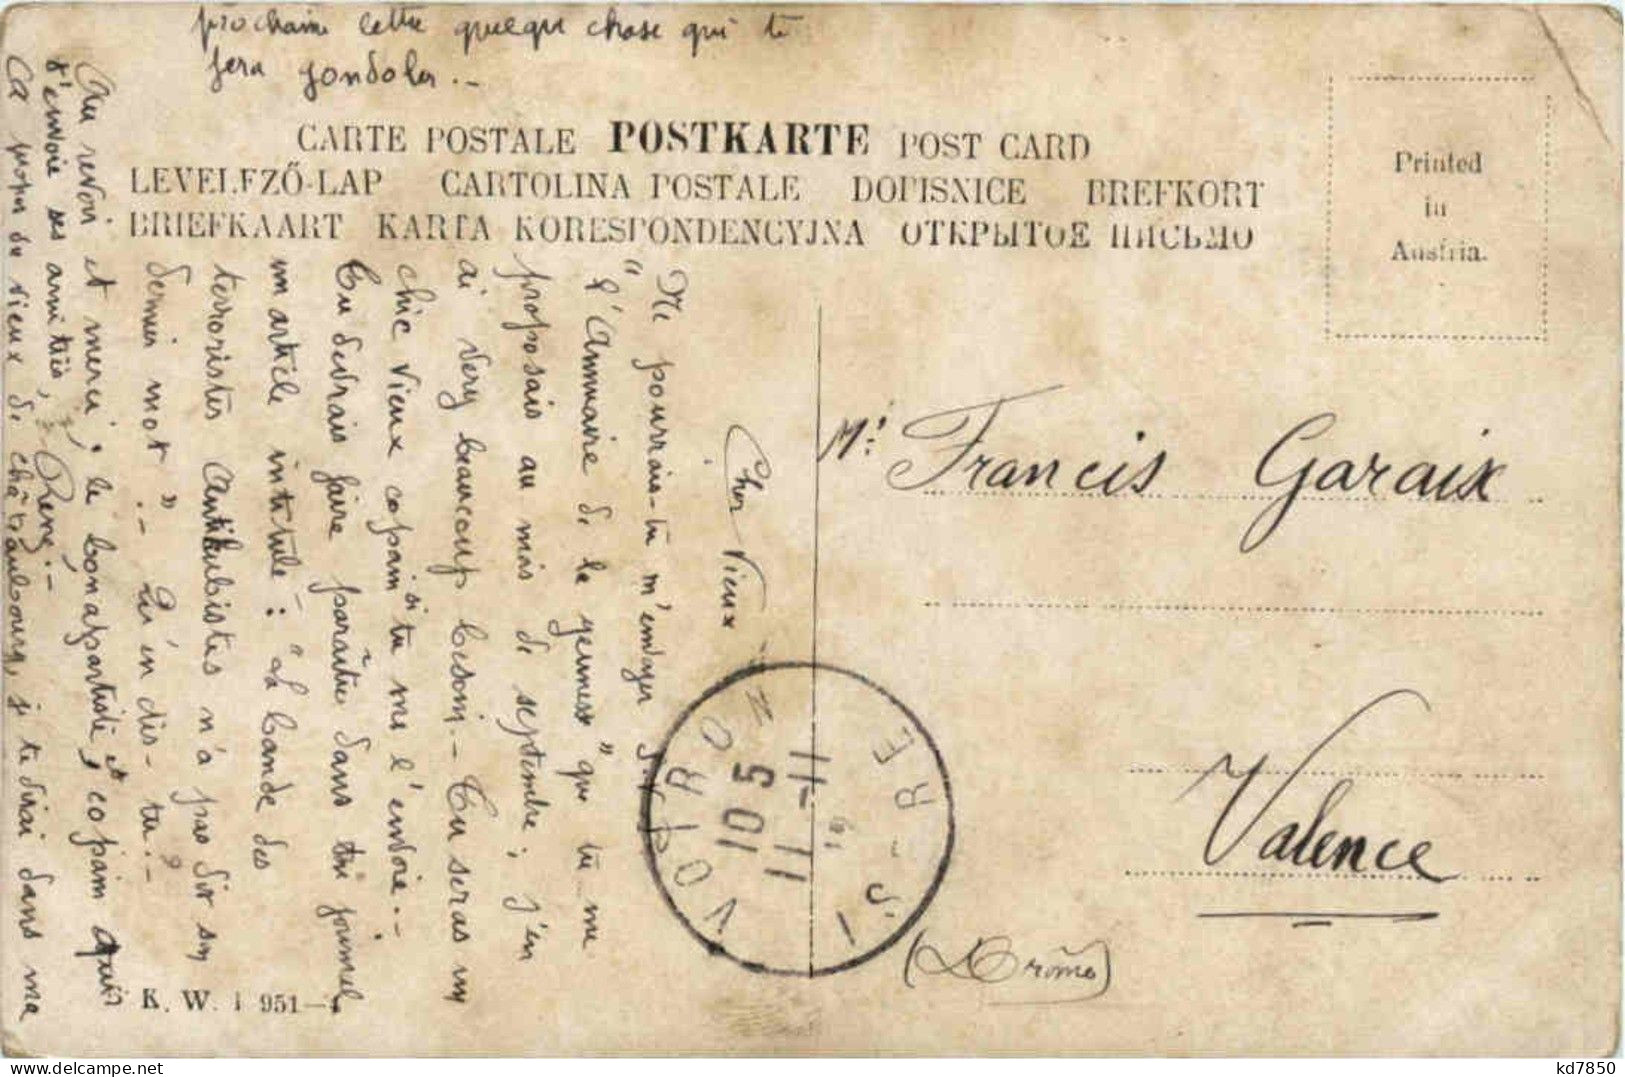 prochaine lettre quelque chose qui te
fera gondoler. -
CARTE POSTALE POSTKARTE POST CARD
LEVELEZŐ-LAP CARTOLINA POSTALE DOPISNICE BREFKORT
BRIEFKAART KARTA KORESPONDENCYJNA ОТКРЫТОЕ ПИСЬМО
Printed
in
Austria.
Cher Vieux
Me pourrais-tu m'envoyer
"l'Annuaire de la jeunesse" que tu me
proposais au mois de septembre; j'en
ai very beaucoup besoin. - Tu seras un
chic vieux copain si tu me l'envoie. -
Tu devrais faire paraître dans ton journal
un article intitulé: "La bande des
terroristes Antikubistes n'a pas dit son
dernier mot". - Qu'en dis-tu? -
Au revoir et merci; le bonapartiste, et copain qui
t'envoie ses amitiés, René. -
Ca propos de vieux de châteaubourg, je te dirai dans ma
Mr. Francis Garaix
Valence
(Drôme)
10 5
11-11
K. W. I 951-
kd7850